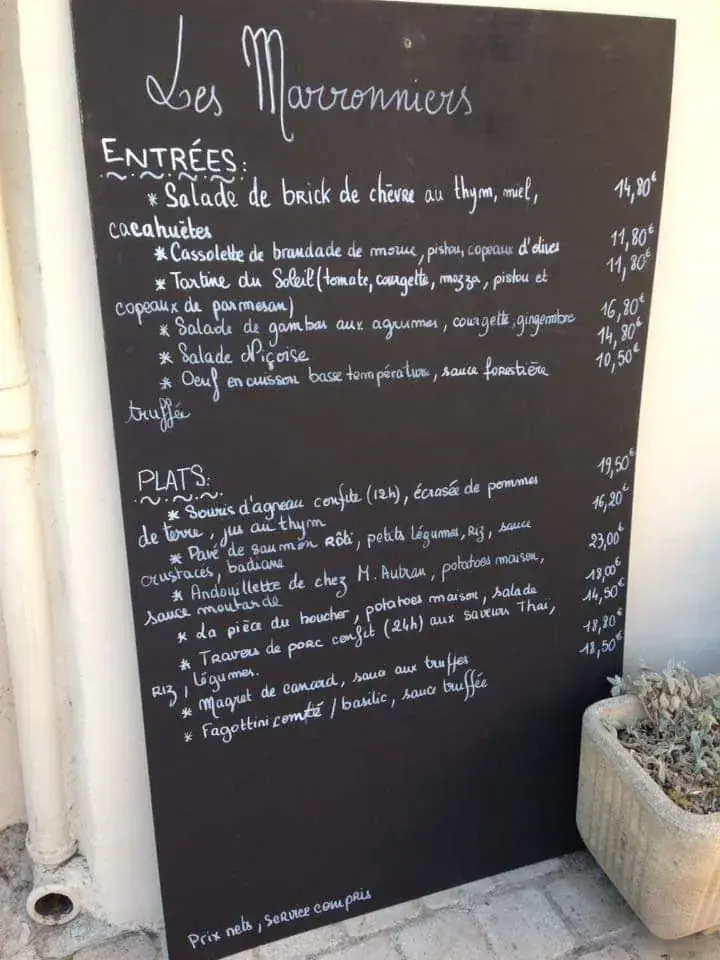 Les Marronniers
ENTRÉES:
* Salade de brick de chèvre au thym, miel, 14,80€
cacahuètes
* Cassolette de brandade de morue, pistou, copeaux d'olives 11,80€
* Tartine du Soleil (tomate, courgette, mozza, pistou et 11,80€
copeaux de parmesan)
* Salade de gambas aux agrumes, courgette, gingembre 16,80€
* Salade Niçoise 14,80€
* Oeuf en cuisson basse température, sauce forestière 10,50€
truffée
PLATS:
* Souris d'agneau confite (12h), écrasée de pommes 19,50€
de terre, jus au thym
* Pavé de saumon Rôti, petits légumes, Riz, sauce 16,20€
crustacés, badiane
* Andouillette de chez M. Aubran, potatoes maison, 23,00€
sauce moutarde
* La pièce du boucher, potatoes maison, salade 18,00€
* Travers de porc confit (24h) aux saveurs Thaï, 14,50€
Riz, légumes.
* Magret de canard, sauce aux truffes 18,80€
* Fagottini comté / basilic, sauce truffée 18,50€
Prix nets, service compris